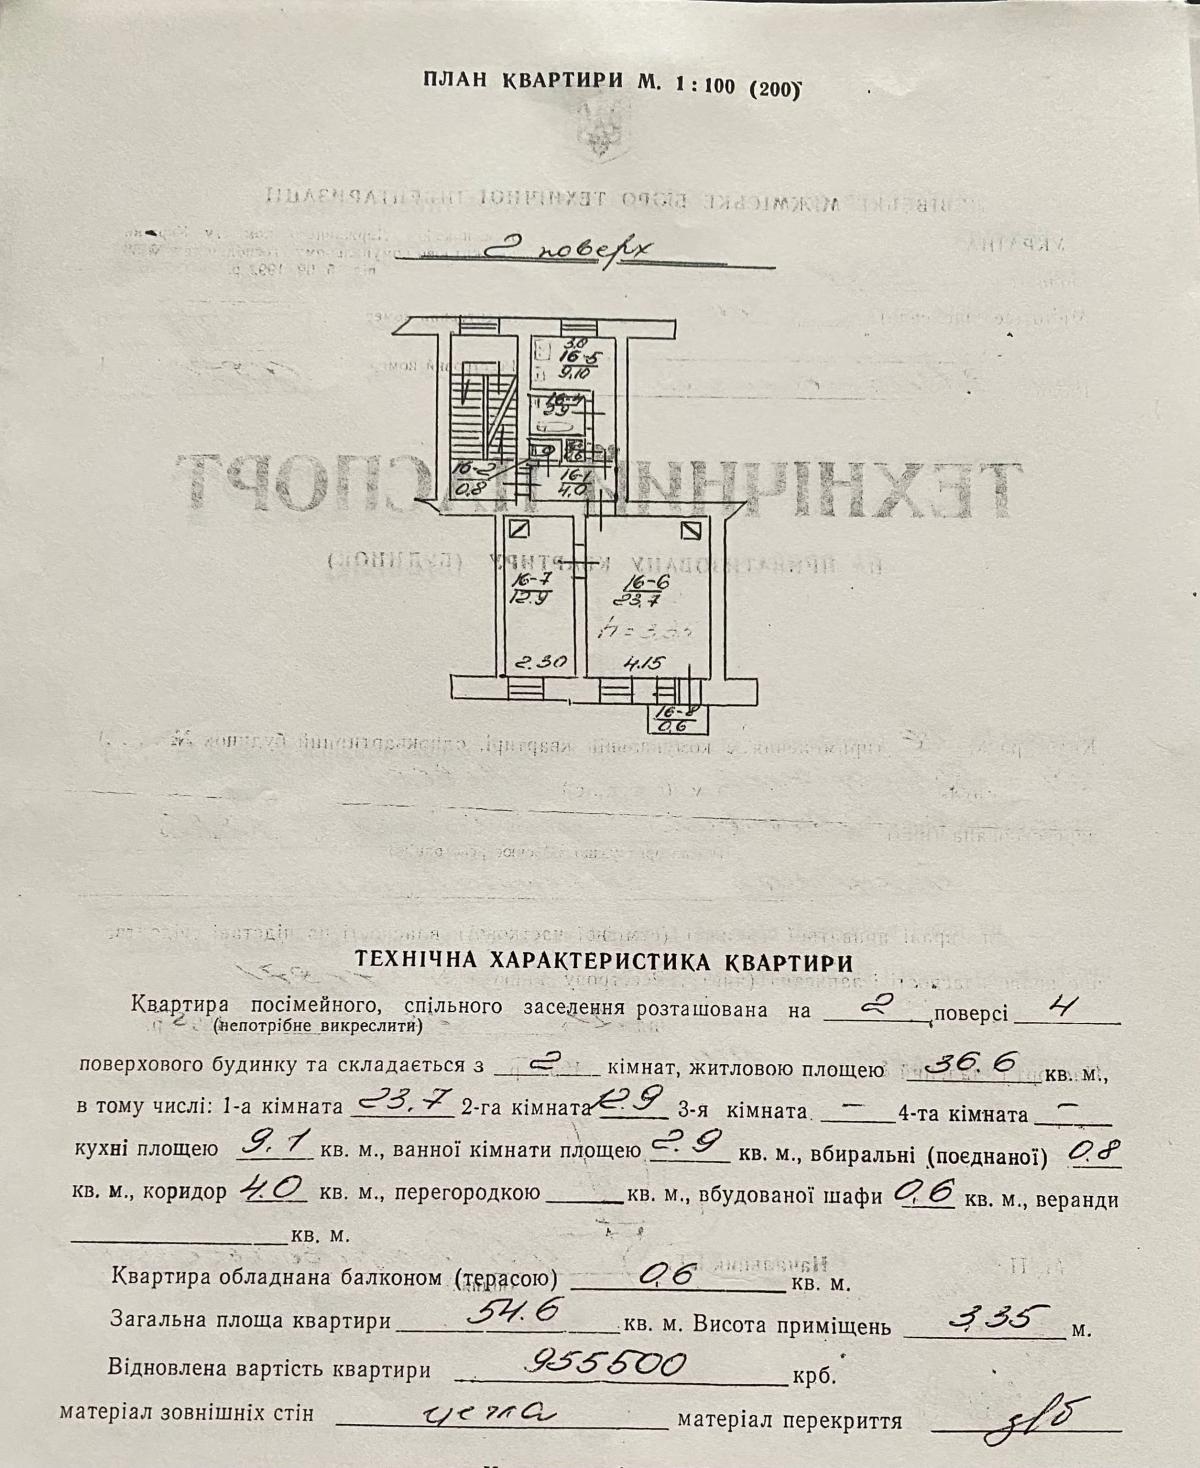 ПЛАН КВАРТИРИ М. 1 : 100 (200)
2 поверх
3.8
16-5
9.10
16-4
2.9
16-2
0.8
16-1
4.0
16-7
12.9
16-6
23.7
h = 3.35
2.30
4.15
16-8
0.6
ТЕХНІЧНА ХАРАКТЕРИСТИКА КВАРТИРИ
Квартира посімейного, спільного заселення розташована на 2 поверсі 4
(непотрібне викреслити)
поверхового будинку та складається з 2 кімнат, житловою площею 36.6 кв. м.,
в тому числі: 1-а кімната 23.7 2-га кімната 12.9 3-я кімната — 4-та кімната —
кухні площею 9.1 кв. м., ванної кімнати площею 2.9 кв. м., вбиральні (поєднаної) 0.8
кв. м., коридор 4.0 кв. м., перегородкою кв. м., вбудованої шафи 0,6 кв. м., веранди
кв. м.
Квартира обладнана балконом (терасою) 0,6 кв. м.
Загальна площа квартири 54.6 кв. м. Висота приміщень 3.35 м.
Відновлена вартість квартири 955500 крб.
матеріал зовнішніх стін цегла матеріал перекриття з/б